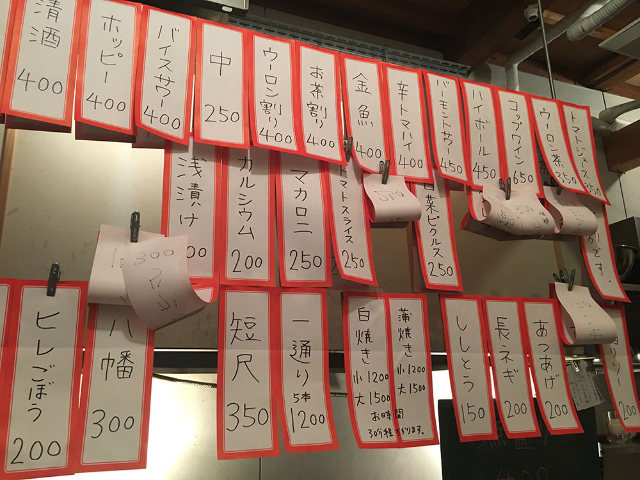 清酒 400
ホッピー 400
バイスサワー 400
中 250
ウーロン割り 400
お茶割り 400
金魚 400
辛トマハイ 400
バーモントサワー 450
ハイボール 450
コップワイン 650
ウーロン茶 350
トマトジュース 350
浅漬け
カルシウム 200
マカロニ 250
トマトスライス 250
白菜ピクルス 250
です。
300
ヒレごぼう 200
八幡 300
短尺 350
一通り 5本 1200
白焼き 小1200 大1500
蒲焼き 小1200 大1500
お時間
30分程かかります。
ししとう 150
長ネギ 200
あつあげ 200
200